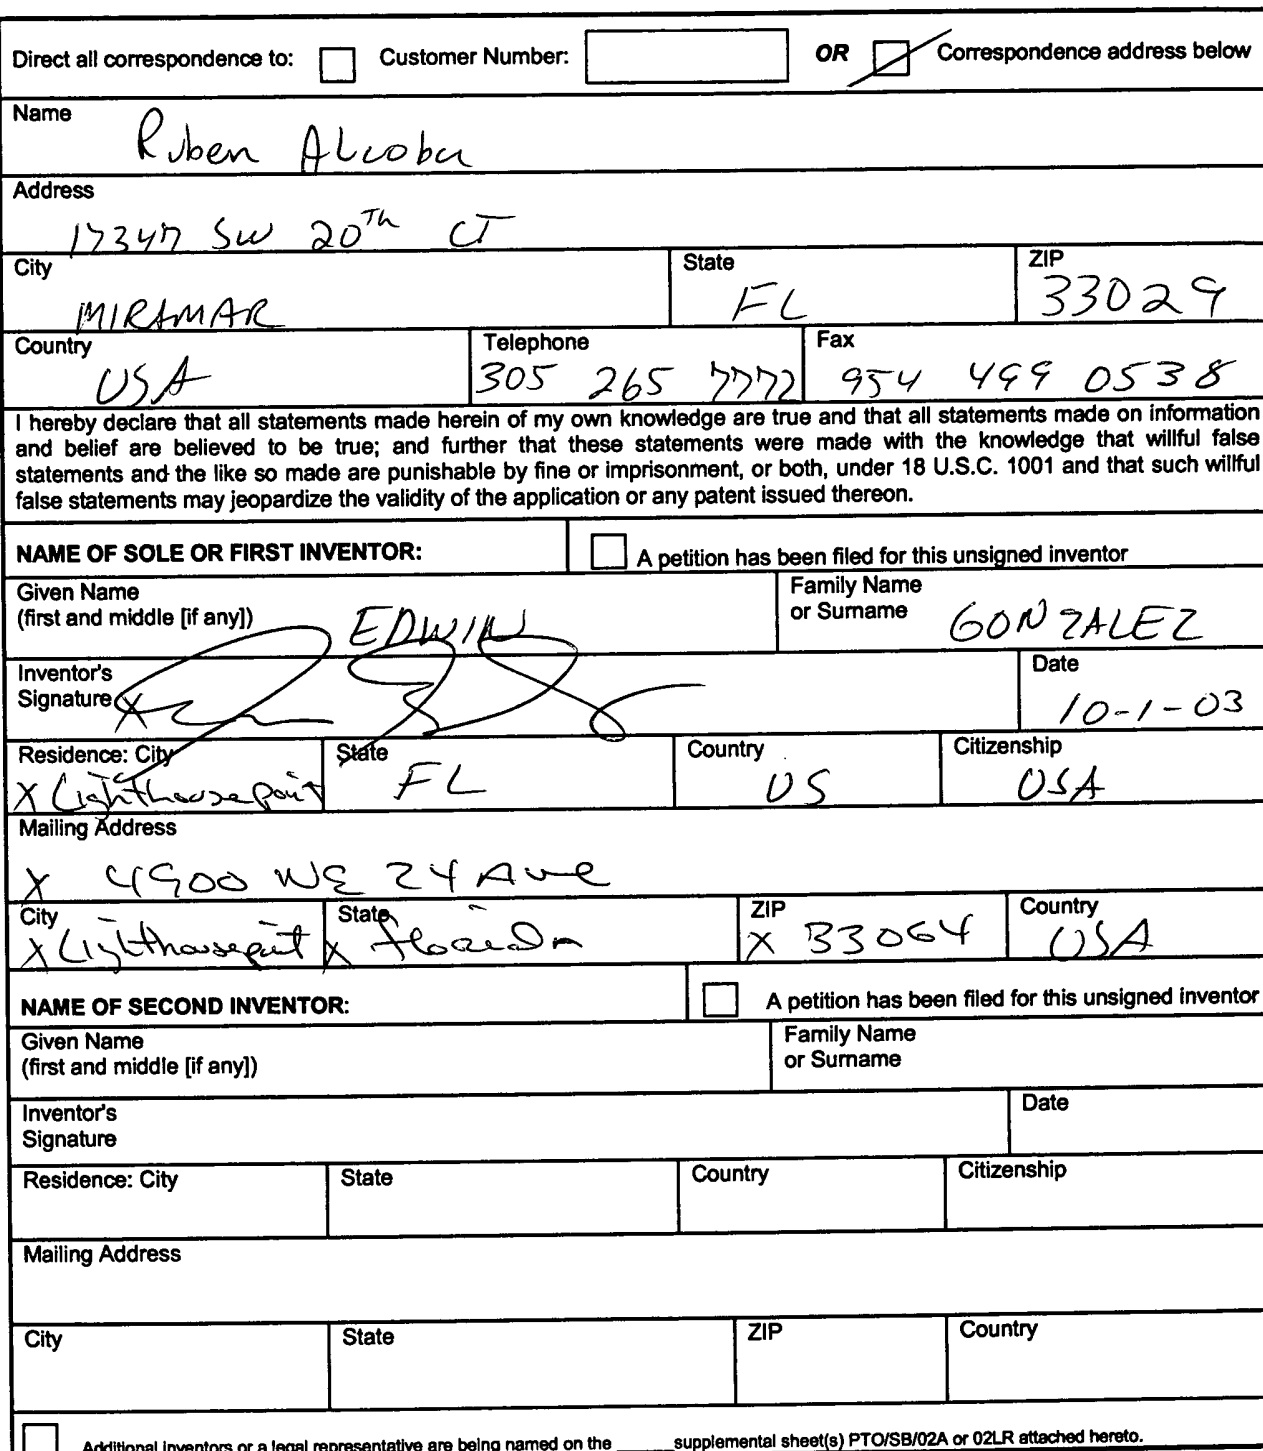 Direct all correspondence to: Customer Number: OR Correspondence address below
Name
Ruben Alcoba
Address
17347 SW 20Th CT
City State ZIP
MIRAMAR FL 33029
Country Telephone Fax
USA 305 265 7772 954 499 0538
I hereby declare that all statements made herein of my own knowledge are true and that all statements made on information
and belief are believed to be true; and further that these statements were made with the knowledge that willful false
statements and the like so made are punishable by fine or imprisonment, or both, under 18 U.S.C. 1001 and that such willful
false statements may jeopardize the validity of the application or any patent issued thereon.
NAME OF SOLE OR FIRST INVENTOR: A petition has been filed for this unsigned inventor
Given Name Family Name
(first and middle [if any]) EDWIN or Surname GONZALEZ
Inventor's Date
Signature X 10-1-03
Residence: City State Country Citizenship
X Lighthousepoint FL US USA
Mailing Address
X 4900 NE 24 Ave
City State ZIP Country
X Lighthousepoint X Florida X 33064 USA
NAME OF SECOND INVENTOR: A petition has been filed for this unsigned inventor
Given Name Family Name
(first and middle [if any]) or Surname
Inventor's Date
Signature
Residence: City State Country Citizenship
Mailing Address
City State ZIP Country
Additional inventors or a legal representative are being named on the ______supplemental sheet(s) PTO/SB/02A or 02LR attached hereto.